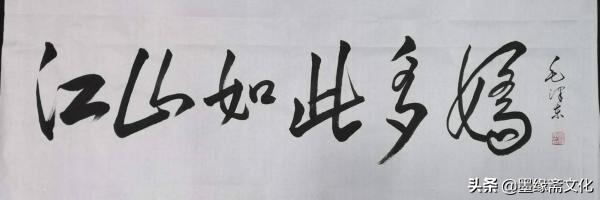 江山如此多娇
毛泽东
头条 @墨缘斋文化